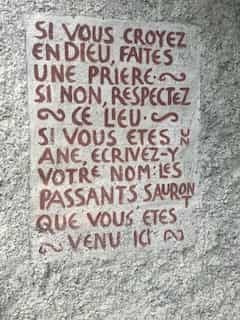 SI VOUS CROYEZ
EN DIEU, FAITES
UNE PRIERE.
SI NON, RESPECTEZ
CE LIEU.
SI VOUS ETES UN
ANE, ECRIVEZ-Y
VOTRE NOM: LES
PASSANTS SAURONT
QUE VOUS ETES
VENU ICI